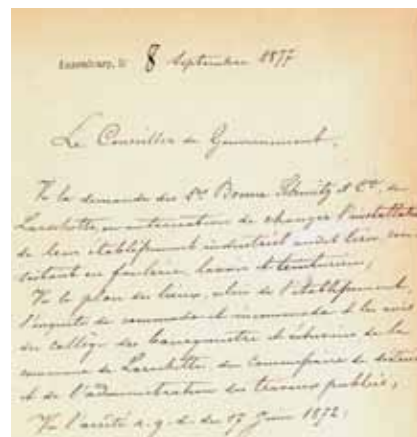 Luxembourg, le 8 Septembre 1877
Le Conseiller de Gouvernement,
Vu la demande des Srs Bonne Schmitz & Cie, de
Larochette, en autorisation de changer l'installation
de leur établissement industriel audit lieu, con-
sistant en foulerie, lavoir et teinturerie;
Vu le plan des lieux, celui de l'établissement,
l'enquête de commodo et incommodo & les avis
du collège des bourgmestre et échevins de la
commune de Larochette, du commissaire de district
et de l'administration des travaux publics;
Vu l'arrêté r. g. d. du 17 Juin 1872;